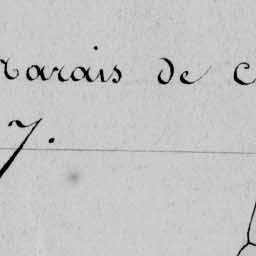 marais de c
7.